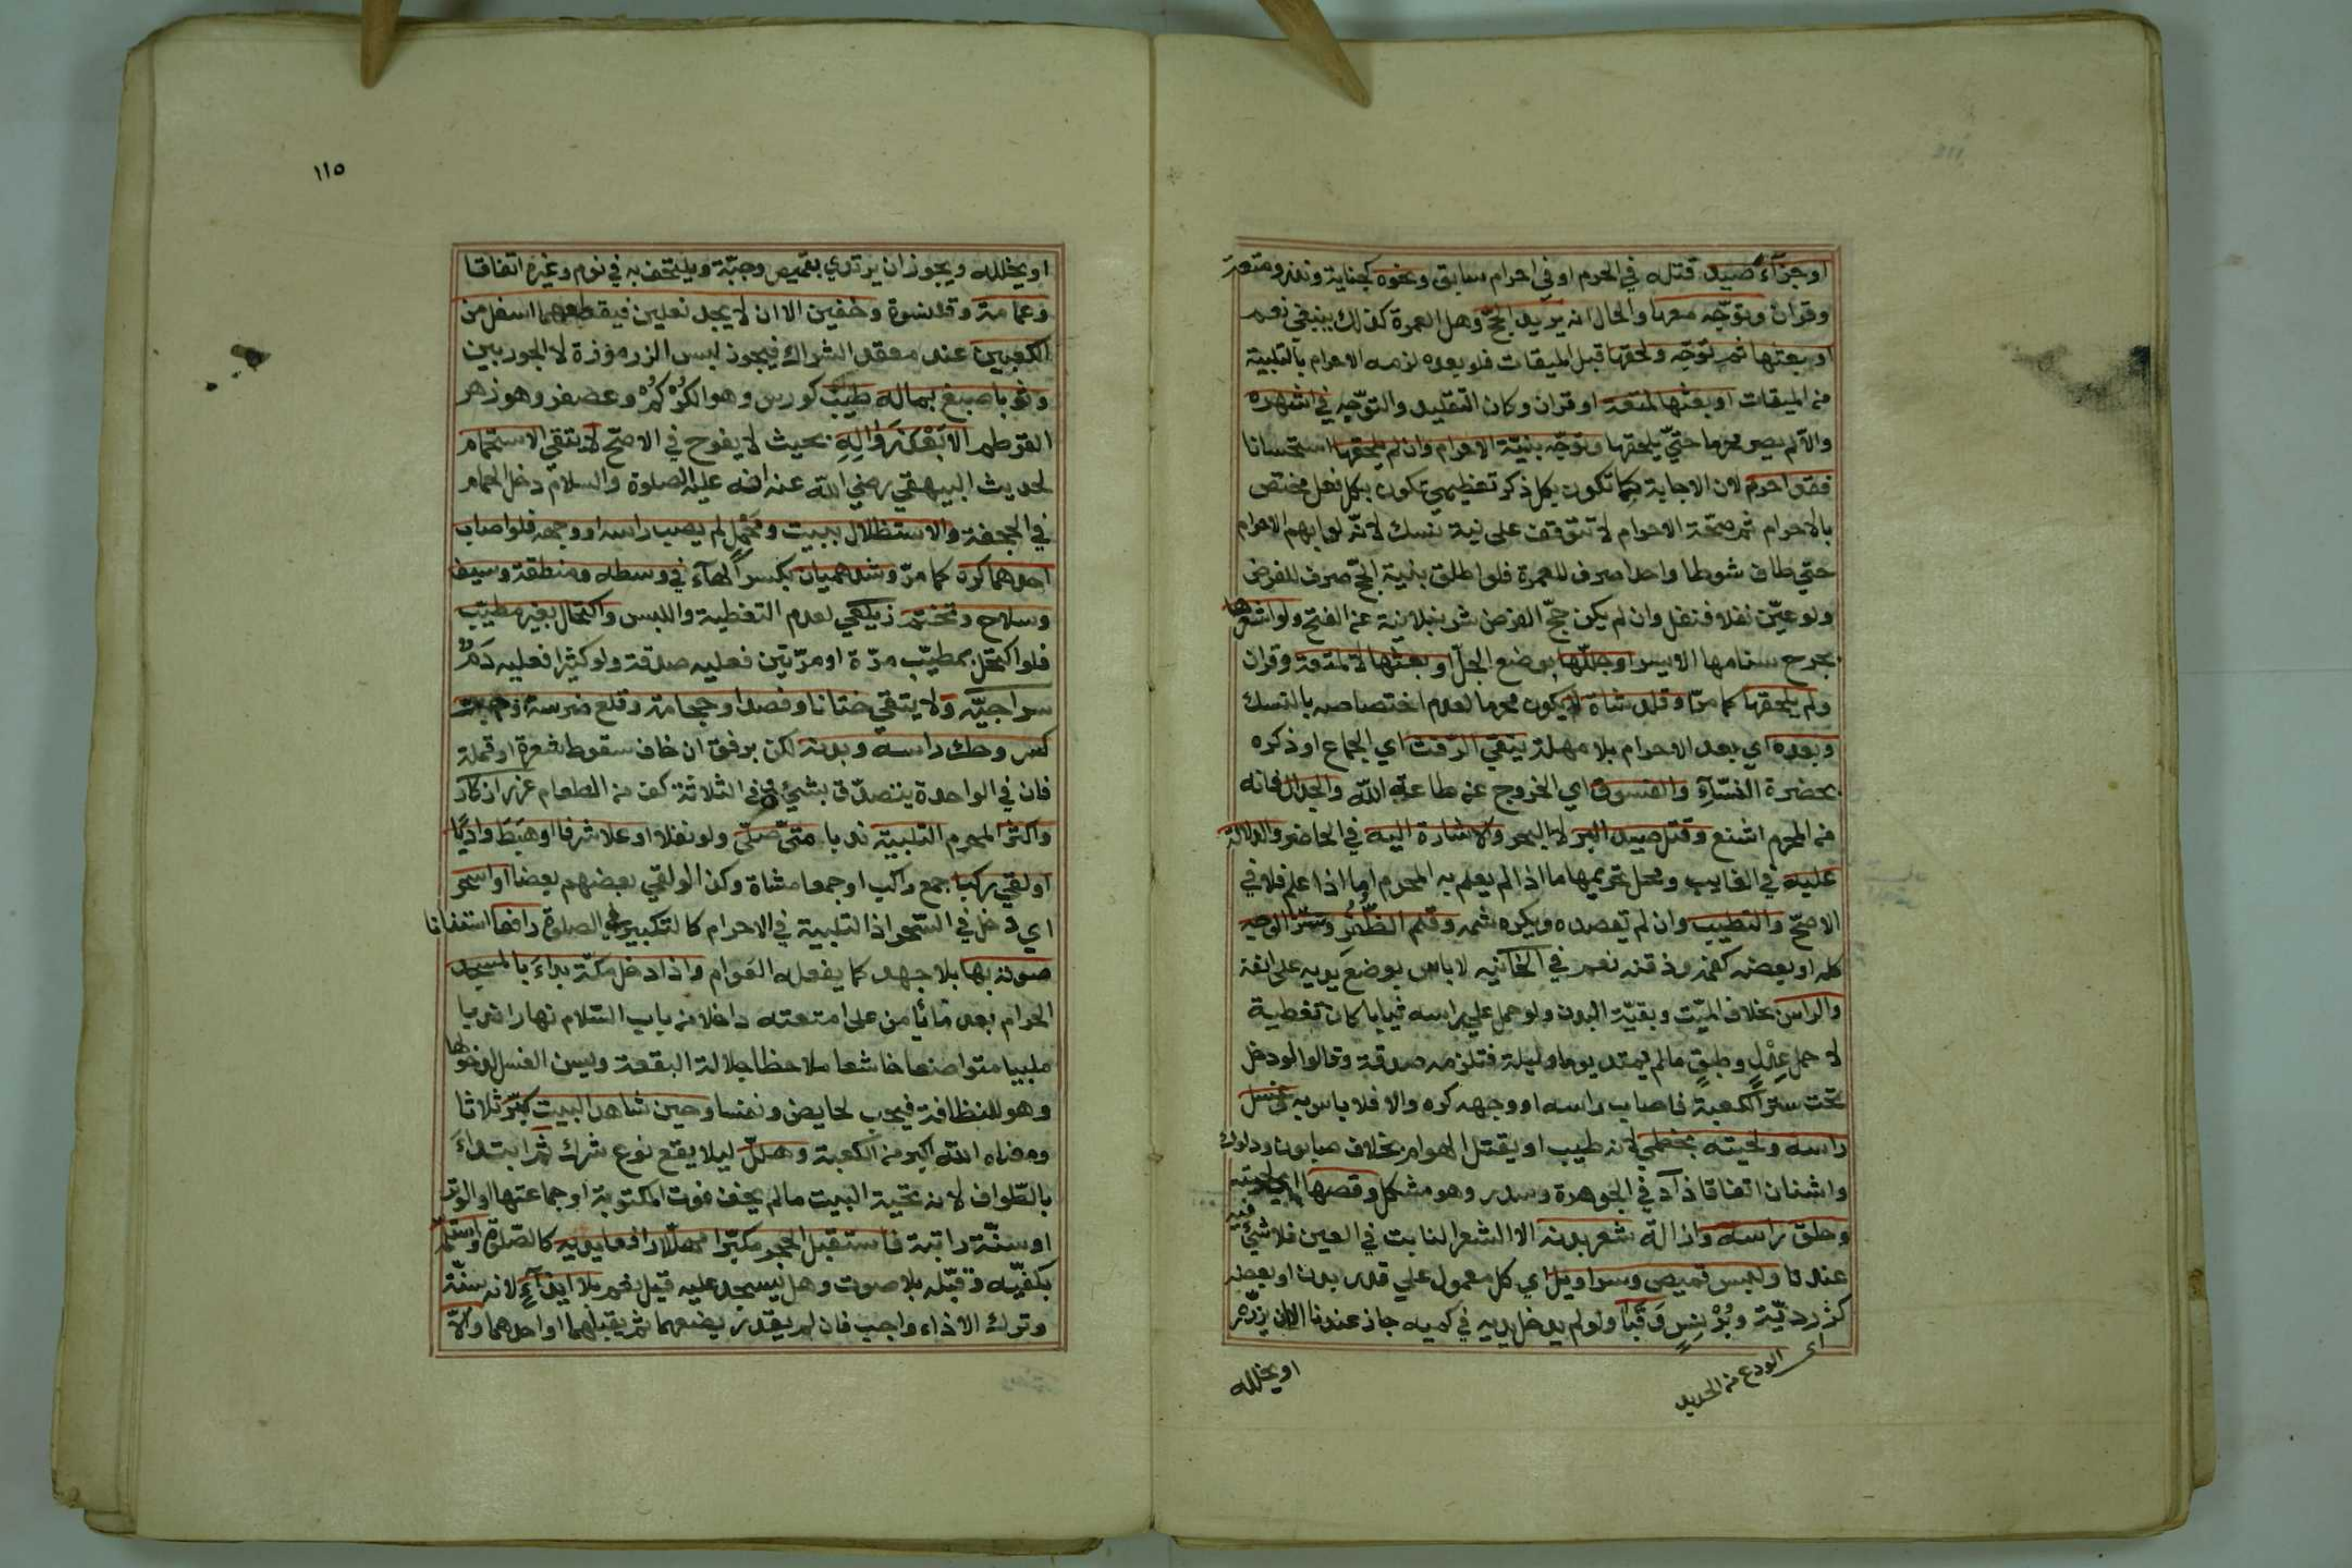 او جزآء صيد قتله في الحرم او في احرام سابق ونحوه كجناية ونذر ومتعة
وقران وتوجّه معها والحال انه يريد الحجّ وهل العمرة كذلك ينبغي نعم
او بعثها ثم توجّه ولحقها قبل الميقات فلو بعده لزمه الاحرام بالتلبية
من الميقات او بعثها لمتعة او قران وكان التقليد والتوجّه في اشهره
والا لم يصر محرما حتّي يلحقها وتوجّه بنيّة الاحرام وان لم يلحقها استحسانا
فقد احرم لان الاجابة كما تكون بكل ذكر تعظيمي تكون بكل فعل مختص
بالاحرام ثم صحّة الاحرام لا تتوقف علي نية نسك لانّه لو ابهم الاحرام
حتي طاف شوطا واحدا صرف للعمرة فلو اطلق بنية الحجّ صرف للفرض
ولو عيّن نفلا فنفل وان لم يكن حجّ الفرض شرنبلالية عن الفتح ولو اشعرها
بجرح سنامها الايسر او جللّها بوضع الجلّ او بعثها لا لمتعة وقران
ولم يلحقها كما مرّ او قلد شاة لا يكون محرما لعدم اختصاصه بالنسك
وبعده اي بعد الاحرام بلا مهلة يتقي الرّفث اي الجماع او ذكره
بحضرة النسّآء والفسوق اي الخروج عن طاعة اللّه والجدال فانه
من المحرم اشنع وقتل صيد البر لا البحر والاشارة اليه في الحاضر والدلالة
عليه في الغايب ومحل تحريمها ما اذا لم يعلم به المحرم اما اذا علم فلا في
الاصحّ والتطيب وان لم يقصده ويكره شمه وقلم الظّفر وستر الوجه
كله او بعضه كفمه وذقنه نعم في الخانيه لا باس بوضع يديه علي انفه
والراس بخلاف الميّت وبقيّة البدن ولو حمل علي راسه ثيابا كان تغطية
لا حمل عِدْلٍ وطبقٍ مالم يمتد يوما وليلة فتلزمه صدقة وقالوا لو دخل
تحت ستر الكعبة فاصاب راسه او وجهه كره والا فلا باس به وغسل
راسه ولحيته بخطمي لانه طيب او يقتل الهوام بخلاف صابون ودلوك
واشنان اتفاقا زاد في الجوهرة وسدر وهو مشكل وقصها اي لحيته
وحلق راسه وازالة شعر بدنه الا الشعر النابت في العين فلا شيئ فيه
عندنا ولبس قميص وسراويل اي كل معمول علي قدر بدن او بعضه
كزرديّة وبُرْنسٍ وَقَبا ولو لم يدخل يديه في كميه جاز عندنا الا ان يزرّه
اي الودع من الحديد
او يخلله
١١٥
او يخلله ويجوز ان يرتدي بقميص وجبّة ويلتحف به في نوم وغيره اتفاقا
وعمامة وقلنسوة وخفين الا ان لا يجد نعلين فيقطعهما اسفل من
الكعبين عند معقد الشراك فيجوز لبس الزرموزة لا الجوربين
وثوبا صبغ بماله طيب كورس وهو الكركم وعصفر وهو زهر
القرطم الا بَعْدَ زَوَالِهِ بحيث لا يفوح في الاصحّ لا يتقي الاستحمام
لحديث البيهقي رضي اللّه عنه انه عليه الصلوة والسلام دخل الحمام
في الجحفة والاستظلال ببيت ومَحْمِل لم يصب راسه او وجهه فلو اصاب
احدهما كره كما مرّ وشد هميان بكسر الهآء في وسطه ومنطقة وسيف
وسلاح وتختم زيلعي لعدم التغطية واللبس واكتحال بغير مطيّب
فلو اكتحل بمطيّب مرّة او مرّتين فعليه صدقة ولو كثيرا فعليه دَمٌ
سراجيّه ولا يتقي ختانا وفصدا وحجامة وقلع ضرسه وجبر
كسر وحك راسه وبدنه لكن برفق ان خاف سقوط شعرة او قملة
فان في الواحدة يتصدّق بشيئ وفي الثلاثة كف من الطعام غرر اذكار
واكثر المحرم التلبية ندبا متي صلّي ولو نفلا او علا شرفا او هَبَطَ وادِيًا
او لقي ركبا جمع راكب او جمعا مشاة وكذا لو لقي بعضهم بعضا او اسحر
اي دخل في السّحر اذ التلبية في الاحرام كالتكبير في الصلوة رافعا استنانا
صوته بها بلا جهد كما يفعله العوام واذا دخل مكّة بداءَ بالمسجد
الحرام بعد ما يأمن علي امتعته داخلا من باب السّلام نهارا ندبا
ملبيا متواضعا خاشعا ملاحظا جلالة البقعة ويسن الغسل لدخولها
وهو للنظافة فيجب لحايض ونفسا وحين شاهد البيت كبّر ثلاثا
ومعناه اللّه اكبر من الكعبة وهللّ ليلا يقع نوع شرك ثم ابتداءَ
بالطّواف لانه تحية البيت مالم يخف فوت المكتوبة او جماعتها او الوتر
او سنّة راتبة فاستقبل الحجر مكبّرا مهلّلا رافعا يديه كالصّلوة واستلمه
بكفّيه وقبّله بلا صوت وهل يسجد عليه قيل نعم بلا ايذآءٍ لانه سنّة
وترك الاذاء واجب فان لم يقدر يضعهما ثم يقبلهما او احدهما والاّ